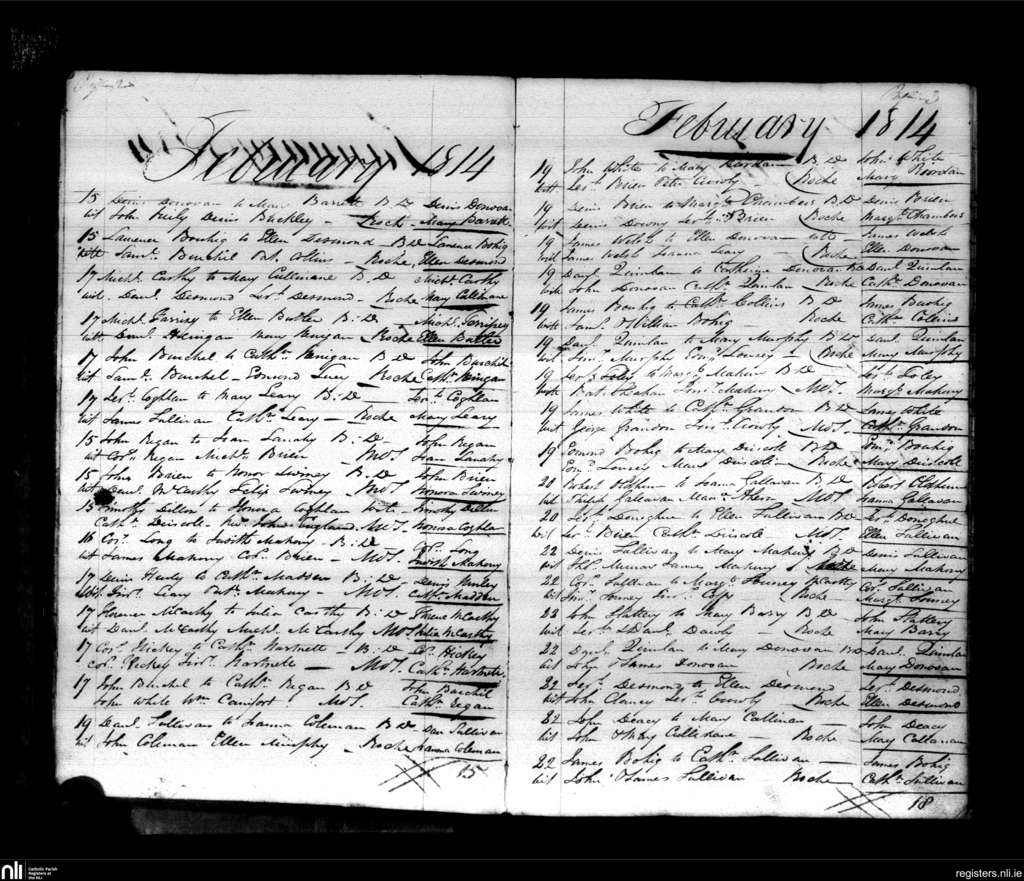 February 1814
15 Denis Donovan to Mary Barrett B:D Denis Donovan
wit John Hurly Denis Buckley - Roch - Mary Barrett
15 Laurence Bouhig to Ellen Desmond - B:D Laurence Bohig
witt Saml. Burchil Pat. Collins - Roche, Ellen Desmond
17 Michl. Carthy to Mary Cullinane B.D Michl. Carthy
wit. Danl. Desmond Jerh. Desmond - Roche Mary Cullinane
17 Michl. to Ellen Butler B:D - Michl.
witt Danl. Hinigan Mary Hinigan Roche Ellen Butler
17 John Burchel to Cathn. Henigan B D John Burchil
wit Saml. Burchel - Edmond - Roche Cathn. Henigan
17 Jerh. Coghlan to Mary Leary B:D - Jerh. Coghlan
wit James Sullivan Cathn. Leary - Roche Mary Leary
15 John Regan to Joan B:D - John Regan
wit Corns. Regan Michl. Brien - MoS Joan
15 John Brien to Honor Swiney B:D John Brien
wit Danl. McCarthy Felix Swiney - MoS Honora Swiney
15 Timothy Dillon to Honora Coghlan witt - Timothy Dillon
Cathn. Driscole Revd. John England - MoS. Honora Coghlan
16 Cors. Long to Judith Mahony B:D - Cors. Long
wit James Mahony Cors. Brien - MoS. Judith Mahony
17 Denis Hurly to Cathn. Madden B:D - Denis Hurley
wit. Leary Patk. Mahony - MoS. Cathn. Madden
17 Florence McCarthy to Julia Carthy B:D Florence McCarthy
wit Danl. McCarthy Michl. McCarthy MoS Julia McCarthy
17 Cors. Hickey to Cathn. Hartnett - B:D Cs. Hickey
Cors. Hickey Hartnett - MoS. Cathn. Hartnett
17 John Burchel to Cathn. Regan B D John Burchil
John White Wm. Comfort MoS. Cathn. Regan
19 Danl. Sullivan to Joanna Coleman B D - Dan Sullivan
wit John Coleman Ellen Murphy - Roche Joanna Coleman
15
February 1814
19 John White to Mary Reardan B:D John White
witt Jerh. Brien Peter Crowly Roche Mary Reordan
19 Denis Brien to Margt. Chambers B D Denis Brien
wit Denis Downy Jerh. Brien Roche Margt. Chambers
19 James Welsh to Ellen Donovan witt - James Welsh
James Welsh Joanna Leary - Roche Ellen Donovan
19 Danl. Quinlan to Catherine Donovan B D Danl. Quinlan
wit John Donovan Cathn. Quinlan Roche Cathn. Donovan
19 James Bouhig to Cathn. Collins B D James Bouhig
witt Saml. & William Bohig - Roche Cathn. Collins
19 Danl. Quinlan to Mary Murphy B D Danl. Quinlan
wit Murphy - Roche Mary Murphy
19 Jerh. to Margt. Mahony B D - Jerh.
witt Pat. Mahony - MoS. Margt. Mahony
19 James White to Cathn. Grandon B:D James White
wit George Grandon Crowly - MoS. Cathn. Grandon
19 Edmond Bohig to Mary Driscole B D Edmd. Bouhig
Mary Driscole - Roche Mary Driscole
20 Robert to Joanna Gallavan B D Robert
wit Philip Gallavan MoS. Joanna Gallavan
20 Jerh. Donoghue to Ellen Sullivan B D Jerh. Donoghue
wit Jerh. Brien Cathn. Driscole - MoS. Ellen Sullivan
22 Denis Sullivan to Mary Mahony B D Denis Sullivan
wit James Mahony Roche Mary Mahony
22 Cors. Sullivan to Margt. Cors. Sullivan
wit Roche - Margt.
22 John Slattery to Mary Barry B D - John Slattery
wit Jerh. & Danl. Dawly - Roche Mary Barry
22 Danl. Quinlan to Mary Donovan B D Danl. Quinlan
wit John & James Donovan Roche Mary Donovan
22 Jerh. Desmond to Ellen Desmond Jerh. Desmond
wit John Clancy Jerh. Crowly - Roche Ellen Desmond
22 John Deacy to Mary Callinan - John Deacy
wit John & Mary - Roche Mary Callanan
22 James Bohig to Cathn. Sullivan - James Bohig
wit John & James Sullivan Roche Cathn. Sullivan
18
nli Catholic Parish
Registers at
the NLI
registers.nli.ie